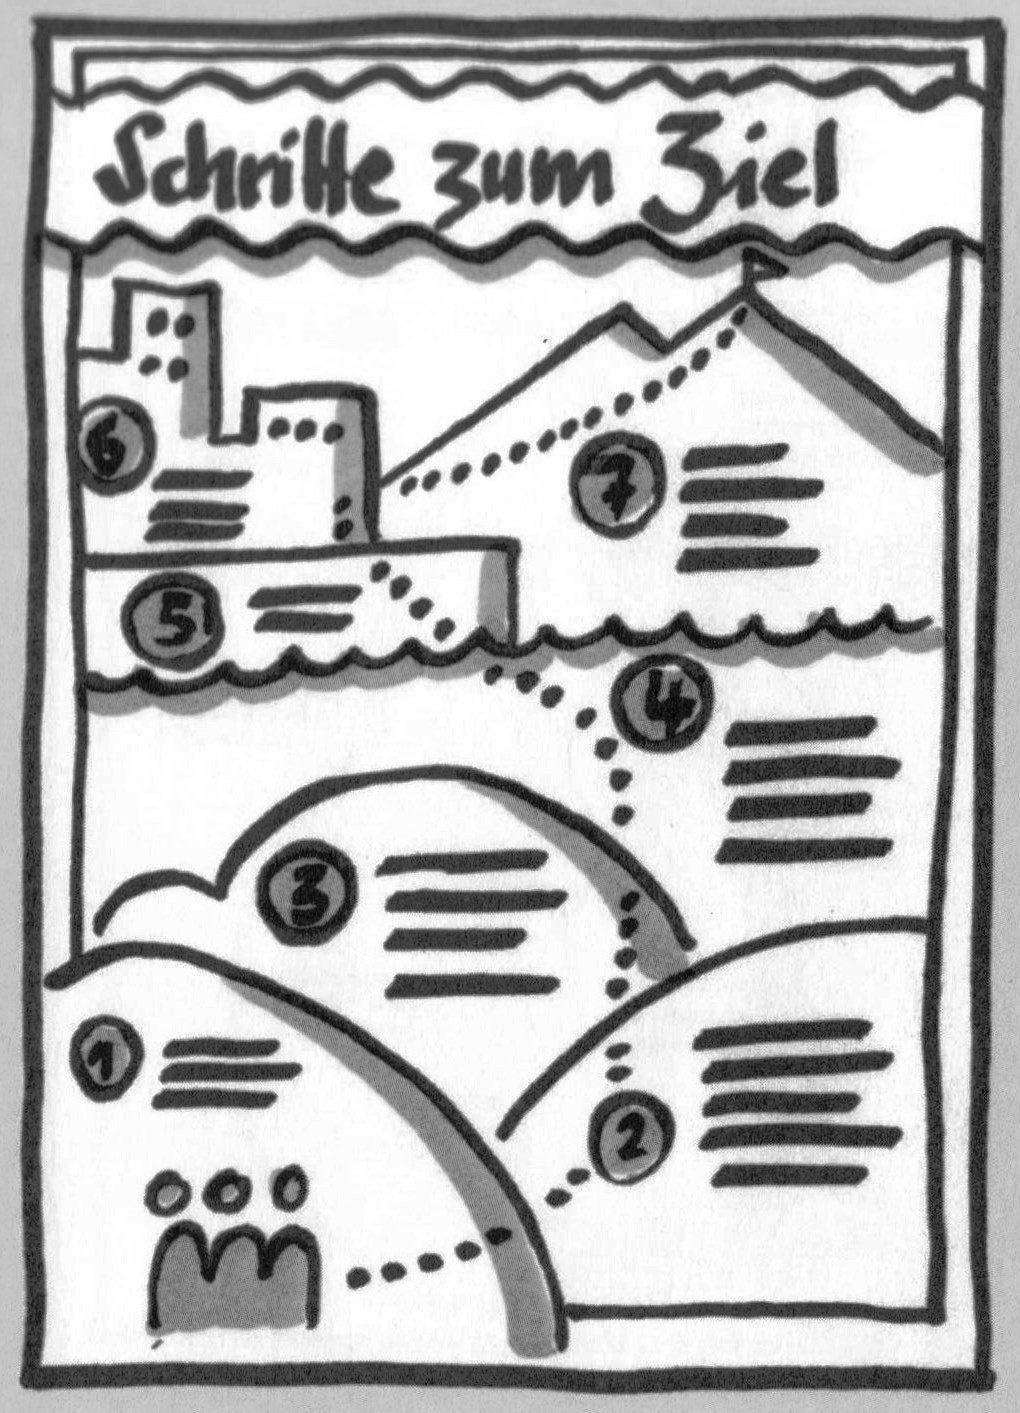 Schritte zum Ziel
6
7
5
4
3
1
2